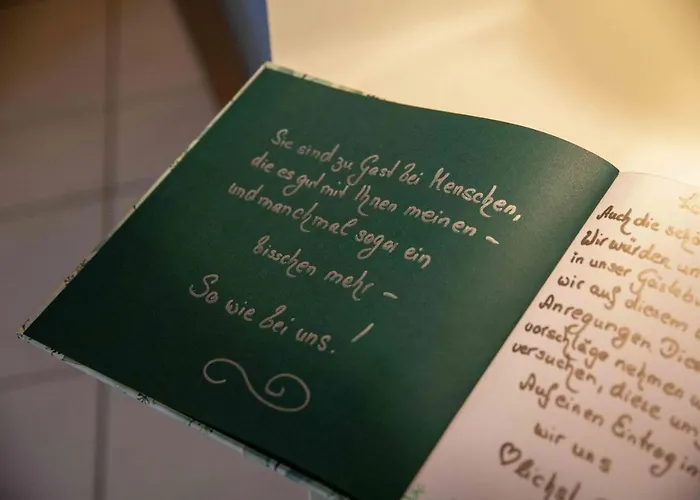 Sie sind zu Gast bei Menschen,
die es gut mit Ihnen meinen –
und manchmal sogar ein
bisschen mehr –
So wie bei uns. !
Auch die
Wir würden
in unser
wir aus diesem
Anregungen.
vorschläge nehmen
versuchen, diese
Auf einen Eintrag in
wir uns